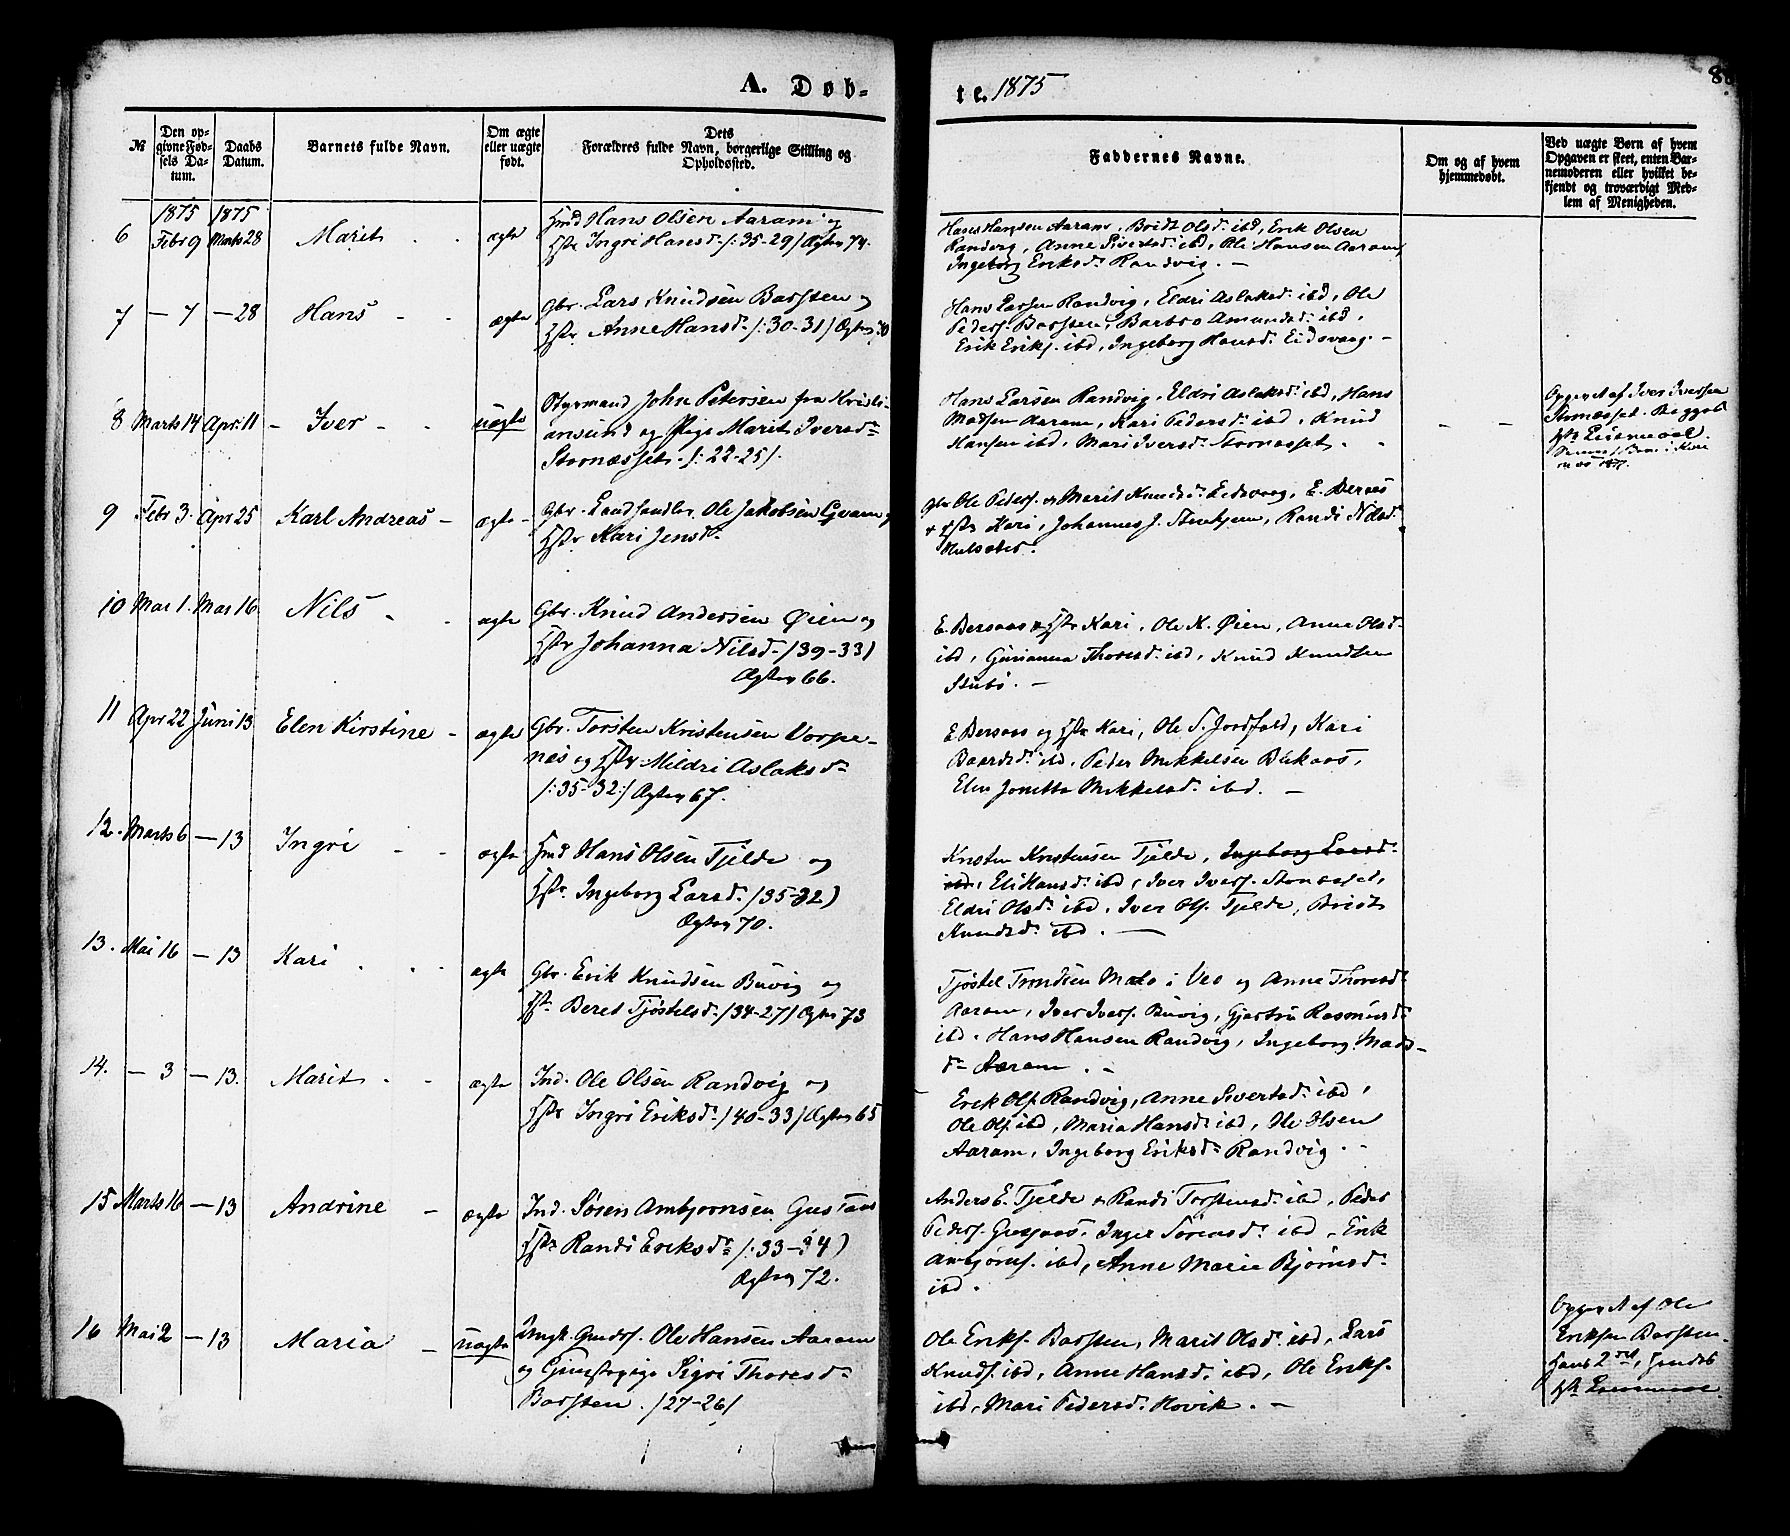 A. Døb-
te. 1875
8
№
Den op-
givne Fød-
sels Da-
tum.
Daabs
Datum.
Barnets fulde Navn.
Om ægte
eller uægte
født.
Dets
Forældres fulde Navn, borgerlige Stilling og
Opholdssted.
Faddernes Navne.
Om og af hvem
hjemmedøbt.
Ved uægte Børn af hvem
Opgaven er skeet, enten Bar-
nemoderen eller hvilket be-
kjendt og troværdigt Med-
lem af Menigheden.
1875 1875
6 Febr 9 Marts 28 Marit - - ægte
Hans Olsen Aaram og
Hstr Ingri Hansd. /:35-29/ Ægtev 74.
Hans Hansen Aaram, Beret Olsd. ibd, Erik Olsen
Randvig, Anne Sivertsd. ibd, Ole Hansen Aaram,
Ingeborg Eriksd. Randvig. -
7 - 7 - 28 Hans - - ægte
Gbr. Lars Knudsen Barsten og
Hstr Anne Hansd. /:30-31/ Ægtev 70
Hans Larsen Randvig, Eldri Aslaksd. ibd, Ole
Peders. Barsten, Barbro Amundsd. ibd,
Erik Eriks. ibd, Ingeborg Hansd. Eidsvaag. -
8 Marts 14 Apr. 11 - Iver - - uægte
Styrmand John Petersen fra Kristi-
ansund og Pige Marit Iversd.
Stornæsset. /:22-25/.
Hans Larsen Randvig, Eldri Aslaksd. ibd, Hans
Madsen Aaram, Kari Pedersd. ibd, Knud
Hansen ibd, Mari Iversd. Stornæsset. -
- -
Opgivet af Iver Iversen
Stornæsset. Begges
9 Febr 3. Apr 25 Karl Andreas - ægte -
Gbr. Landhandler Ole Jakobsen
Hstr Kari Jensd.
Gbr Ole Peders. og Marit Knudsd. Eidsvaag, E. Bersaas
& Hstr Kari, Johannes J. Steenhjem, Randi Nilsd.
10 Mar 1. Mar 16. Nils - - ægte
Gbr. Knud Andersen Øien og
Hstr Johanna Nilsd. /39-33/
Ægtev 66.
E. Bersaas & Hstr Kari, Ole K. Øien, Anne Olsd.
ibd, Gurianna Thoresd. ibd, Knud Knudsen
Stubø. -
11 Apr 22 Juni 13 Elen Kirstine - ægte
Gbr. Torsten Kristensen Vorpe-
næs og Hstr Mildri Aslaksd.
/:35-32:/ Ægtev 67.
E. Bersaas og Hstr Kari, Ole S. Jordfald, Kari
Baardsd. ibd, Peder Mikkelsen Bukaas,
Elen Jonetta Mikkelsd. ibd. -
12. Marts 6 - 13 Ingri - - ægte
Hans Olsen Tjelde og
Hstr. Ingeborg Larsd. /35-32/
Ægtev 70.
Kristen Kristensen Tjelde, Ingeborg Larsd.
ibd, Eli Hansd. ibd, Iver Ivers. Stornæsset,
Eldri Olsd. ibd. Iver Ols. Tjelde, Beret
Knudsd. ibd. -
13. Mai 16 - 13 Kari - - ægte
Gbr. Erik Knudsen Buvig og
Hstr Beret Tjøstelsd. /34-27/ Ægtev 73
Tjøstel Trondsen Malo i Veø og Anne Thoresd.
Aaram, Iver Ivers. Buvig, Gjertru Rasmusd.
ibd. Hans Hansen Randvig, Ingeborg Mads-
d. Aaram. -
14. - 3 - 13. Marit - - ægte
Ind. Ole Olsen Randvig og
Hstr Ingri Eriksd. /40-33/ Ægtev 65
Erik Ols. Randvig, Anne Sivertsd. ibd,
Ole Ols. ibd, Maria Hansd. ibd, Ole Olsen
Aaram, Ingeborg Eriksd. Randvig. -
15 Marts 16 - 13 Andrine - ægte
Ind. Søren Ambjørnsen Gus
Hstr Randi Eriksd. /:33-34/
Ægtev 72.
Anders E. Tjelde & Randi Torstensd. ibd, Peder
Peders. Inger Sørensd. ibd, Erik
Ambjørns. ibd, Anne Marie Bjørnsd.
ibd.
16 Mai 2 - 13 Maria - uægte
Ungk. Ole Hansen Aaram
og Sigri Thoresd.
Barsten. /27-26/
Ole Eriks. Barsten, Marit Olsd. ibd, Lars
Knuds. ibd, Anne Hansd. ibd, Ole Eriks.
ibd, Mari Pedersd. Hovik. -
Opgivet af Ole
Eriksen Barsten.
Hans 2det, hendes